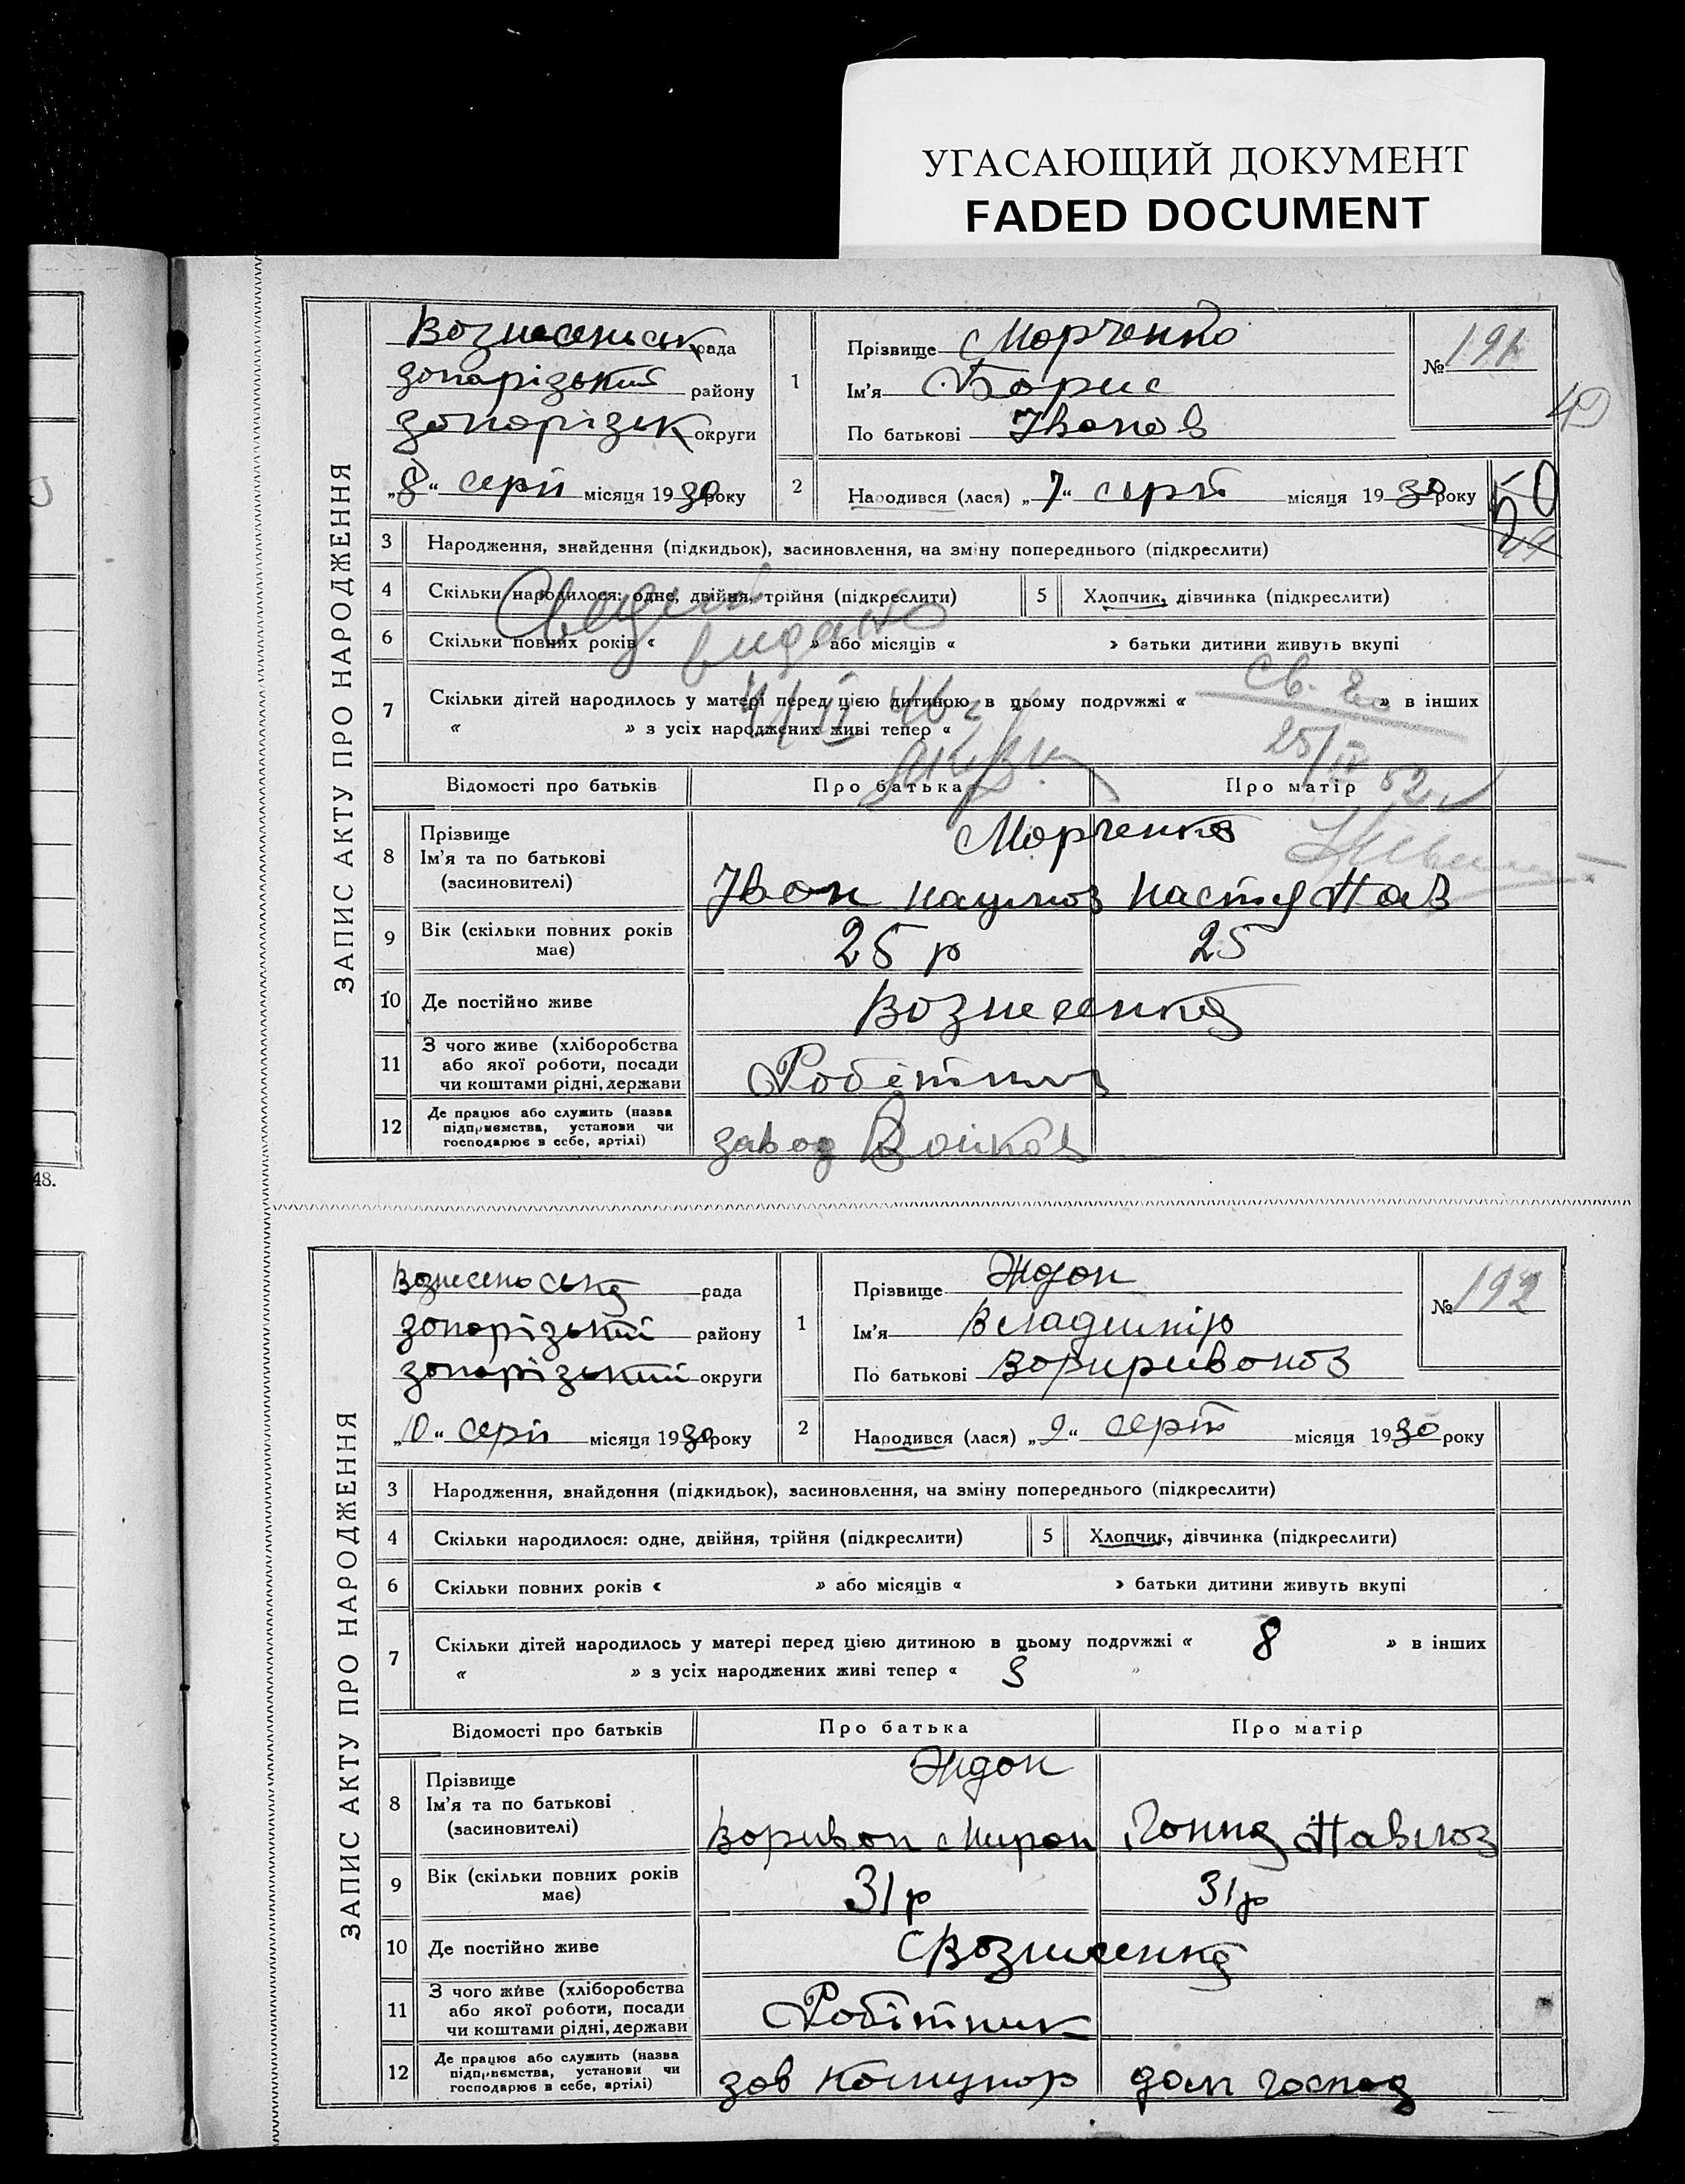 УГАСАЮЩИЙ ДОКУМЕНТ
FADED DOCUMENT
ЗАПИС АКТУ ПРО НАРОДЖЕННЯ
Вознесенськ рада
Зопорізький району
Зопорізьк округи
„8“ серп місяця 1930 року
1
Прізвище Морченко
Ім'я Борис
По батькові Івонов
№ 191
49
2
Народився (лася) „7“ серп місяця 1930 року
50
3 Народження, знайдення (підкидьок), засиновлення, на зміну попереднього (підкреслити)
4 Скільки народилося: одне, двійня, трійня (підкреслити)
5 Хлопчик, дівчинка (підкреслити)
6 Скільки повних років « » або місяців « » батьки дитини живуть вкупі
7 Скільки дітей народилось у матері перед цією дитиною в цьому подружжі « » в інших
« » з усіх народжених живі тепер «
видано
Св.
25/IV 52
Відомості про батьків
Про батька
Про матір
8 Прізвище
Ім'я та по батькові
(засиновителі)
Морченко
Івон Наумов
Настя Пав
9 Вік (скільки повних років
має)
25 р
25
10 Де постійно живе
Вознесенка
11 З чого живе (хліборобства
або якої роботи, посади
чи коштами рідні, держави
Робітник
12 Де працює або служить (назва
підприємства, установи чи
господарює в себе, артілі)
завод Войков
48.
ЗАПИС АКТУ ПРО НАРОДЖЕННЯ
Вознесеноська рада
Зопорізький району
Зопорізький округи
„10“ серп місяця 1930 року
1
Прізвище Ждон
Ім'я Владимір
По батькові Воривонов
№ 192
2
Народився (лася) „9“ серп місяця 1930 року
3 Народження, знайдення (підкидьок), засиновлення, на зміну попереднього (підкреслити)
4 Скільки народилося: одне, двійня, трійня (підкреслити)
5 Хлопчик, дівчинка (підкреслити)
6 Скільки повних років « » або місяців « » батьки дитини живуть вкупі
7 Скільки дітей народилось у матері перед цією дитиною в цьому подружжі « 8 » в інших
« » з усіх народжених живі тепер « »
Відомості про батьків
Про батька
Про матір
8 Прізвище
Ім'я та по батькові
(засиновителі)
Ждон
Воривон Мирон
Гонна Павлов
9 Вік (скільки повних років
має)
31 р
31 р
10 Де постійно живе
с Вознесенка
11 З чого живе (хліборобства
або якої роботи, посади
чи коштами рідні, держави
Робітник
12 Де працює або служить (назва
підприємства, установи чи
господарює в себе, артілі)
зов Комунор
дом господ